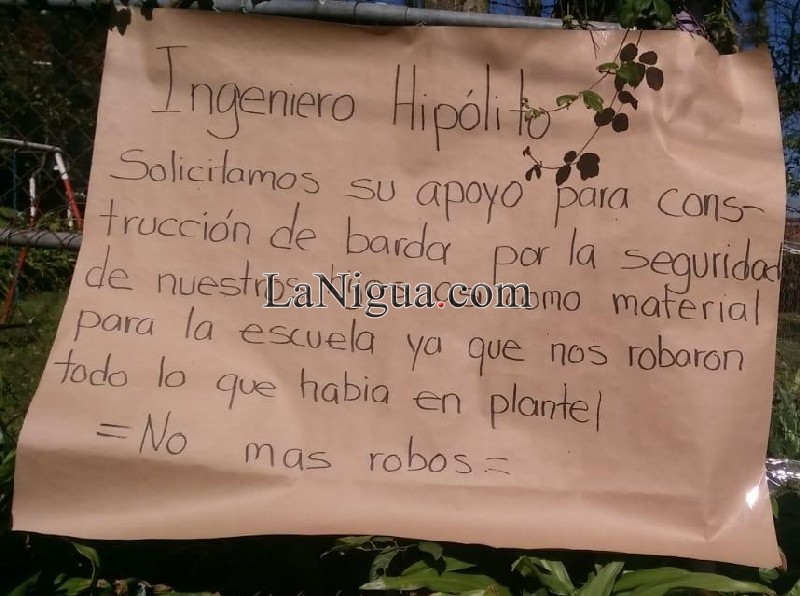 Ingeniero Hipólito
Solicitamos su apoyo para cons-
trucción de barda por la seguridad
de nuestros material
LaNigua.com
para la escuela ya que nos robaron
todo lo que habia en plantel
= No mas robos =